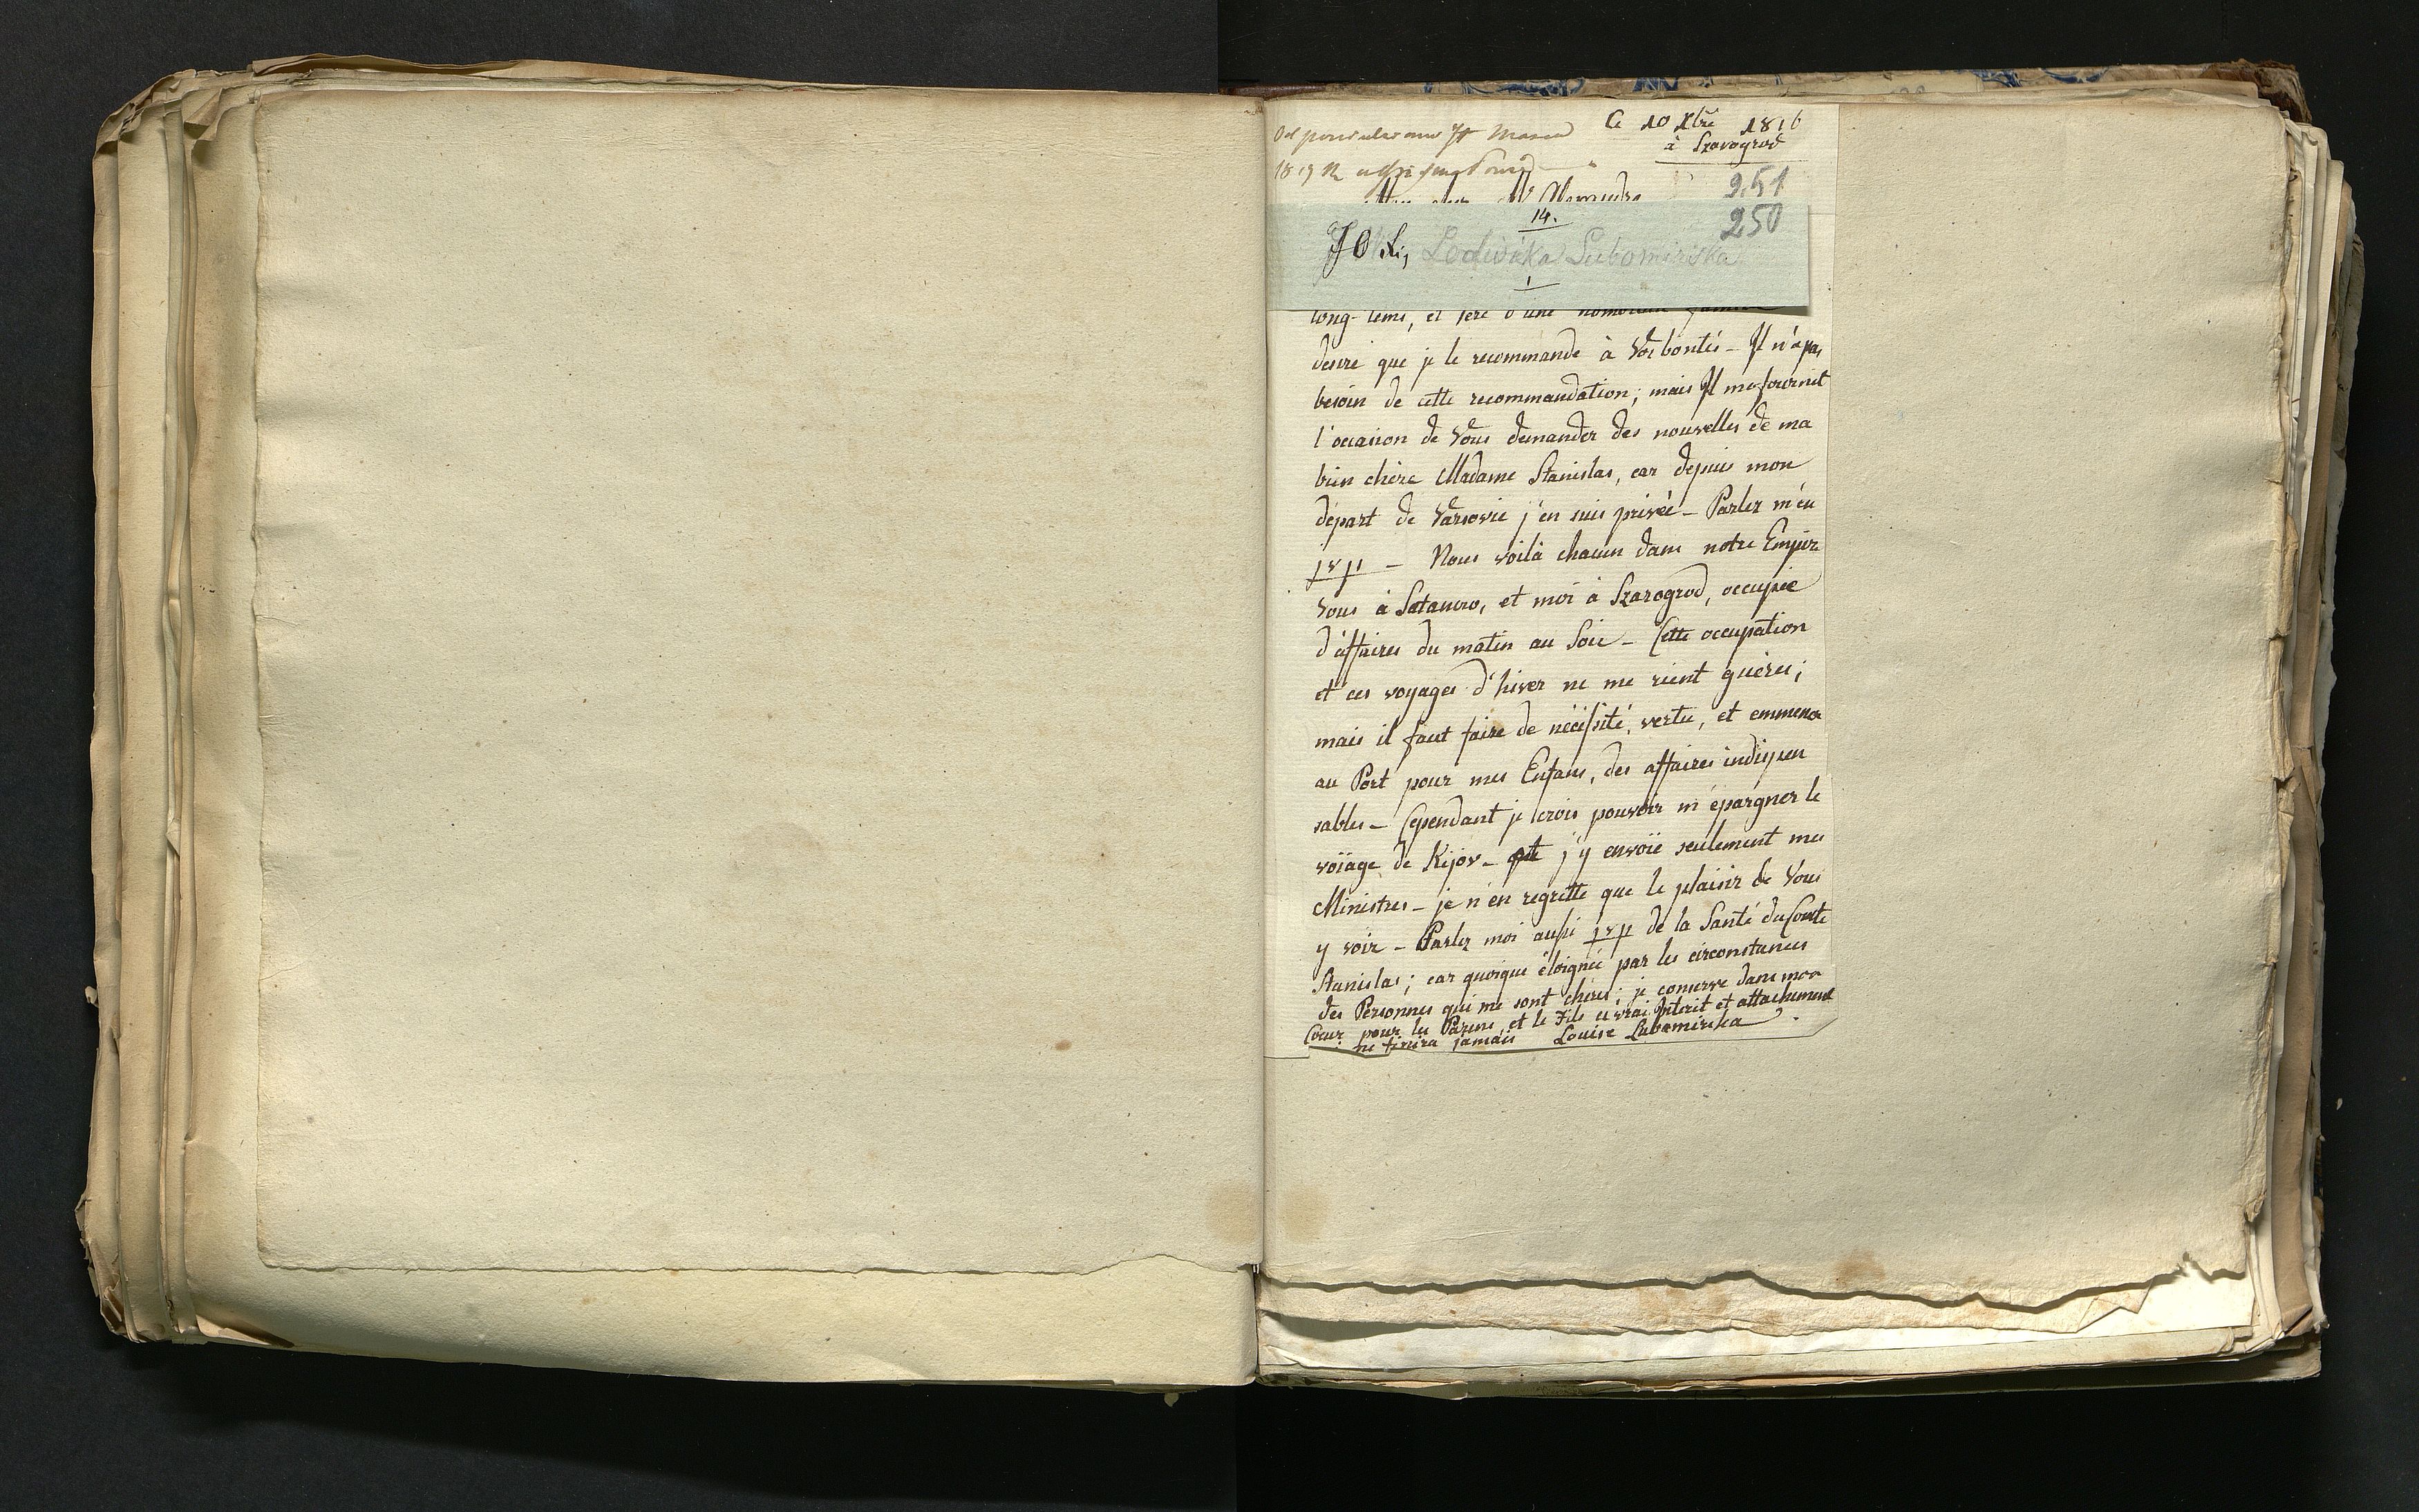 Ce 10 Xbre 1816
à Szarogrod
251
14.
250
JO. Lodwika Lubomirska
1
long-tems, et Père d'une nombreuse famille
desire que je le recommande à Vos bontés – Il n'a pas
besoin de cette recommandation; mais Il me fournit
l'occasion de Vous demander des nouvelles de ma
bien chère Madame Stanislas, car depuis mon
départ de Varsovie j'en suis privée – Parlez m'en
jvp – Nous voilà chacun dans notre Empire
Vous à Satanow, et moi à Szarogrod, occupée
d'affaires du matin au Soir – Cette occupation
et ces voyages d'hiver ne me rient guères;
mais il faut faire de nécéssité, vertu, et emmener
au Port pour mes Enfans, des affaires indispen
sables – Cependant je crois pouvoir m'épargner le
voïage de Kijov – j'y envoïe seulement mes
Ministres – je n'en regrette que le plaisir de Vous
y voir – Parlez moi aussi jvp de la Santé du Comte
Stanislas; car quoique éloignée par les circonstances
des Personnes qui me sont chères; je conserve dans mon
Coeur pour les Parens, et le Fils ce vrai Interit et attachement
ne finira jamais Louise Lubomirska